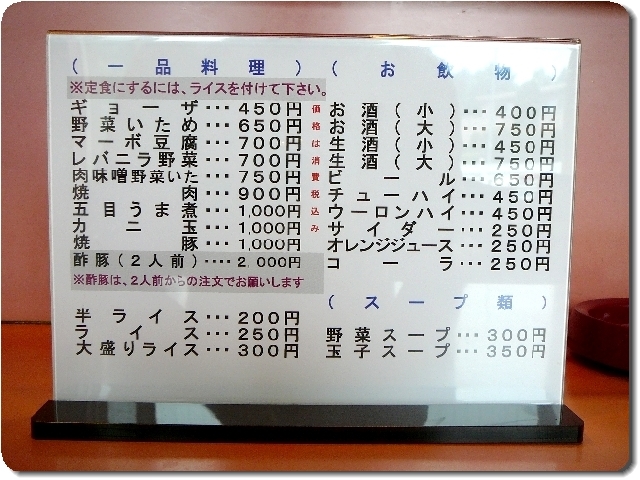 （一品料理）
※定食にするには、ライスを付けて下さい。
ギョーザ･･･450円
野菜いため･･･650円
マーボ豆腐･･･700円
レバニラ野菜･･･700円
肉味噌野菜いた･･･750円
焼肉･･･900円
五目うま煮･･･1,000円
カニ玉･･･1,000円
焼豚･･･1,000円
酢豚（2人前）･･･2,000円
※酢豚は、2人前からの注文でお願いします
半ライス･･･200円
ライス･･･250円
大盛りライス･･･300円
価格は消費税込み
（お飲物）
お酒（小）･･･400円
お酒（大）･･･750円
生酒（小）･･･450円
生酒（大）･･･750円
ビール･･･650円
チューハイ･･･450円
ウーロンハイ･･･450円
サイダー･･･250円
オレンジジュース･･･250円
コーラ･･･250円
（スープ類）
野菜スープ･･･300円
玉子スープ･･･350円